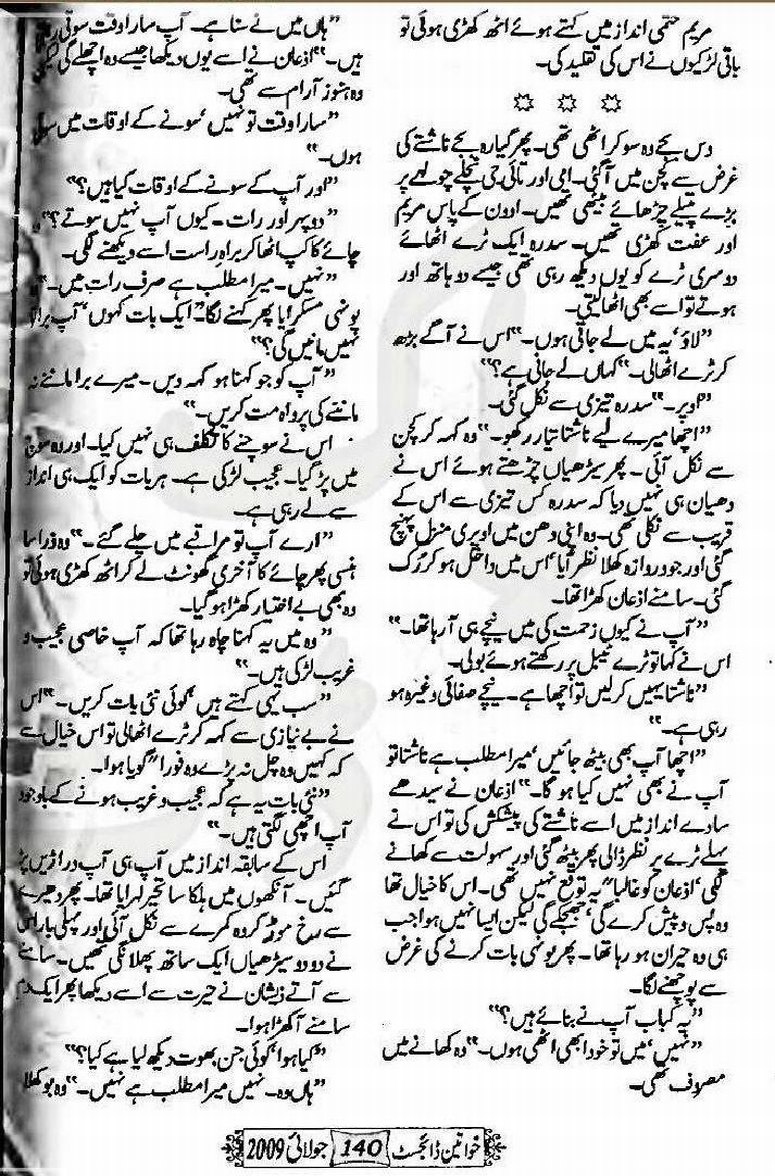 مریم حتمی انداز میں کہتے ہوئے اٹھ کھڑی ہوئی تو
باقی لڑکیوں نے اس کی تقلید کی۔
دس بجے وہ سو کر اٹھی تھی۔ پھر گیارہ بجے ناشتے کی
غرض سے کچن میں آ گئی۔ امی اور تائی جی نچلے چولہے پر
بڑے پتیلے چڑھائے بیٹھی تھیں۔ اوون کے پاس مریم
اور عفت کھڑی تھیں۔ سدرہ ایک ٹرے اٹھائے
دوسری ٹرے کو یوں دیکھ رہی تھی جیسے دو ہاتھ اور
ہوتے تو اسے بھی اٹھا لیتی۔
”لاؤ‘ یہ میں لے جاتی ہوں۔“ اس نے آگے بڑھ
کر ٹرے اٹھا لی۔ ”کہاں لے جانی ہے؟“
”اوپر۔“ سدرہ تیزی سے نکل گئی۔
”اچھا میرے لیے ناشتا تیار رکھو۔“ وہ کہہ کر کچن
سے نکل آئی۔ پھر سیڑھیاں چڑھتے ہوئے اس نے
دھیان ہی نہیں دیا کہ سدرہ کس تیزی سے اس کے
قریب سے نکلی تھی۔ وہ اپنی دھن میں اوپری منزل پہنچ
گئی اور جو دروازہ کھلا نظر آیا‘ اس میں داخل ہو کر رک
گئی۔ سامنے اذعان کھڑا تھا۔
”آپ نے کیوں زحمت کی میں نیچے ہی آ رہا تھا۔“
اس نے کہا تو ٹرے ٹیبل پر رکھتے ہوئے بولی۔
”ناشتا یہیں کر لیں تو اچھا ہے۔ نیچے صفائی وغیرہ ہو
رہی ہے۔“
”اچھا آپ بھی بیٹھ جائیں‘ میرا مطلب ہے ناشتا تو
آپ نے بھی نہیں کیا ہو گا۔“ اذعان نے سیدھے
سادے انداز میں اسے ناشتے کی پیشکش کی تو اس نے
پہلے ٹرے پر نظر ڈالی پھر بیٹھ گئی اور سہولت سے کھانے
لگی‘ اذعان کو غالبا“ یہ توقع نہیں تھی۔ اس کا خیال تھا
وہ پس و پیش کرے گی‘ جھجکے گی لیکن ایسا نہیں ہوا جب
ہی وہ حیران ہو رہا تھا۔ پھر یونہی بات کرنے کی غرض
سے پوچھنے لگا۔
”یہ کباب آپ نے بنائے ہیں؟“
”نہیں‘ میں تو خود ابھی اٹھی ہوں۔“ وہ کھانے میں
مصروف تھی۔
”ہاں میں نے سنا ہے۔ آپ سارا وقت سوتی
ہیں۔“ اذعان نے اسے یوں دیکھا جیسے وہ اچھلے گی لیکن
وہ ہنوز آرام سے تھی۔
”سارا وقت تو نہیں‘ سونے کے اوقات میں سوتی
ہوں۔“
”اور آپ کے سونے کے اوقات کیا ہیں؟“
”دوپہر اور رات۔ کیوں آپ نہیں سوتے؟“
چائے کا کپ اٹھا کر براہ راست اسے دیکھنے لگی۔
”نہیں۔ میرا مطلب ہے صرف رات میں۔“
یونہی مسکرایا پھر کہنے لگا۔ ”ایک بات کہوں‘ آپ برا تو
نہیں مانیں گی؟“
”آپ کو جو کہنا ہو کہہ دیں۔ میرے برا ماننے نہ
ماننے کی پرواہ مت کریں۔“
اس نے سوچنے کا تکلف ہی نہیں کیا۔ اور وہ سوچ
میں پڑ گیا۔ عجیب لڑکی ہے۔ ہر بات کو ایک ہی انداز
سے لے رہی ہے۔
”ارے آپ تو مراقبے میں چلے گئے۔“ وہ ذرا سا
ہنسی پھر چائے کا آخری گھونٹ لے کر اٹھ کھڑی ہوئی تو
وہ بھی بے اختیار کھڑا ہو گیا۔
”وہ میں یہ کہنا چاہ رہا تھا کہ آپ خاصی عجیب و
غریب لڑکی ہیں۔“
”سب یہی کہتے ہیں‘ کوئی نئی بات کریں۔“ اس
نے بے نیازی سے کہہ کر ٹرے اٹھا لی تو اس خیال سے
کہ کہیں وہ چل نہ پڑے وہ فورا“ گویا ہوا۔
”نئی بات یہ ہے کہ عجیب و غریب ہونے کے باوجود
آپ اچھی لگتی ہیں۔“
اس کے سابقہ انداز میں آپ ہی آپ دراڑیں پڑ
گئیں۔ آنکھوں میں ہلکا سا تحیر لہرایا تھا۔ پھر دھیرے
سے رخ موڑ کر وہ کمرے سے نکل آئی اور پہلی بار اس
نے دو دو سیڑھیاں ایک ساتھ پھلانگی تھیں۔ سامنے
سے آتے ذیشان نے حیرت سے اسے دیکھا پھر ایک دم
سامنے آ کھڑا ہوا۔
”کیا ہوا‘ کوئی جن بھوت دیکھ لیا ہے کیا؟“
”ہاں وہ۔ نہیں میرا مطلب ہے نہیں۔“ وہ بوکھلا
خواتین ڈائجسٹ 140 جولائی 2009